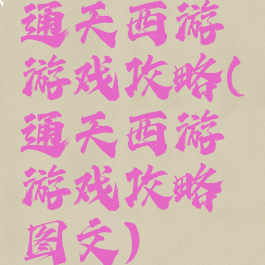 通天西游
游戏攻略(
通天西游
游戏攻略
图文)